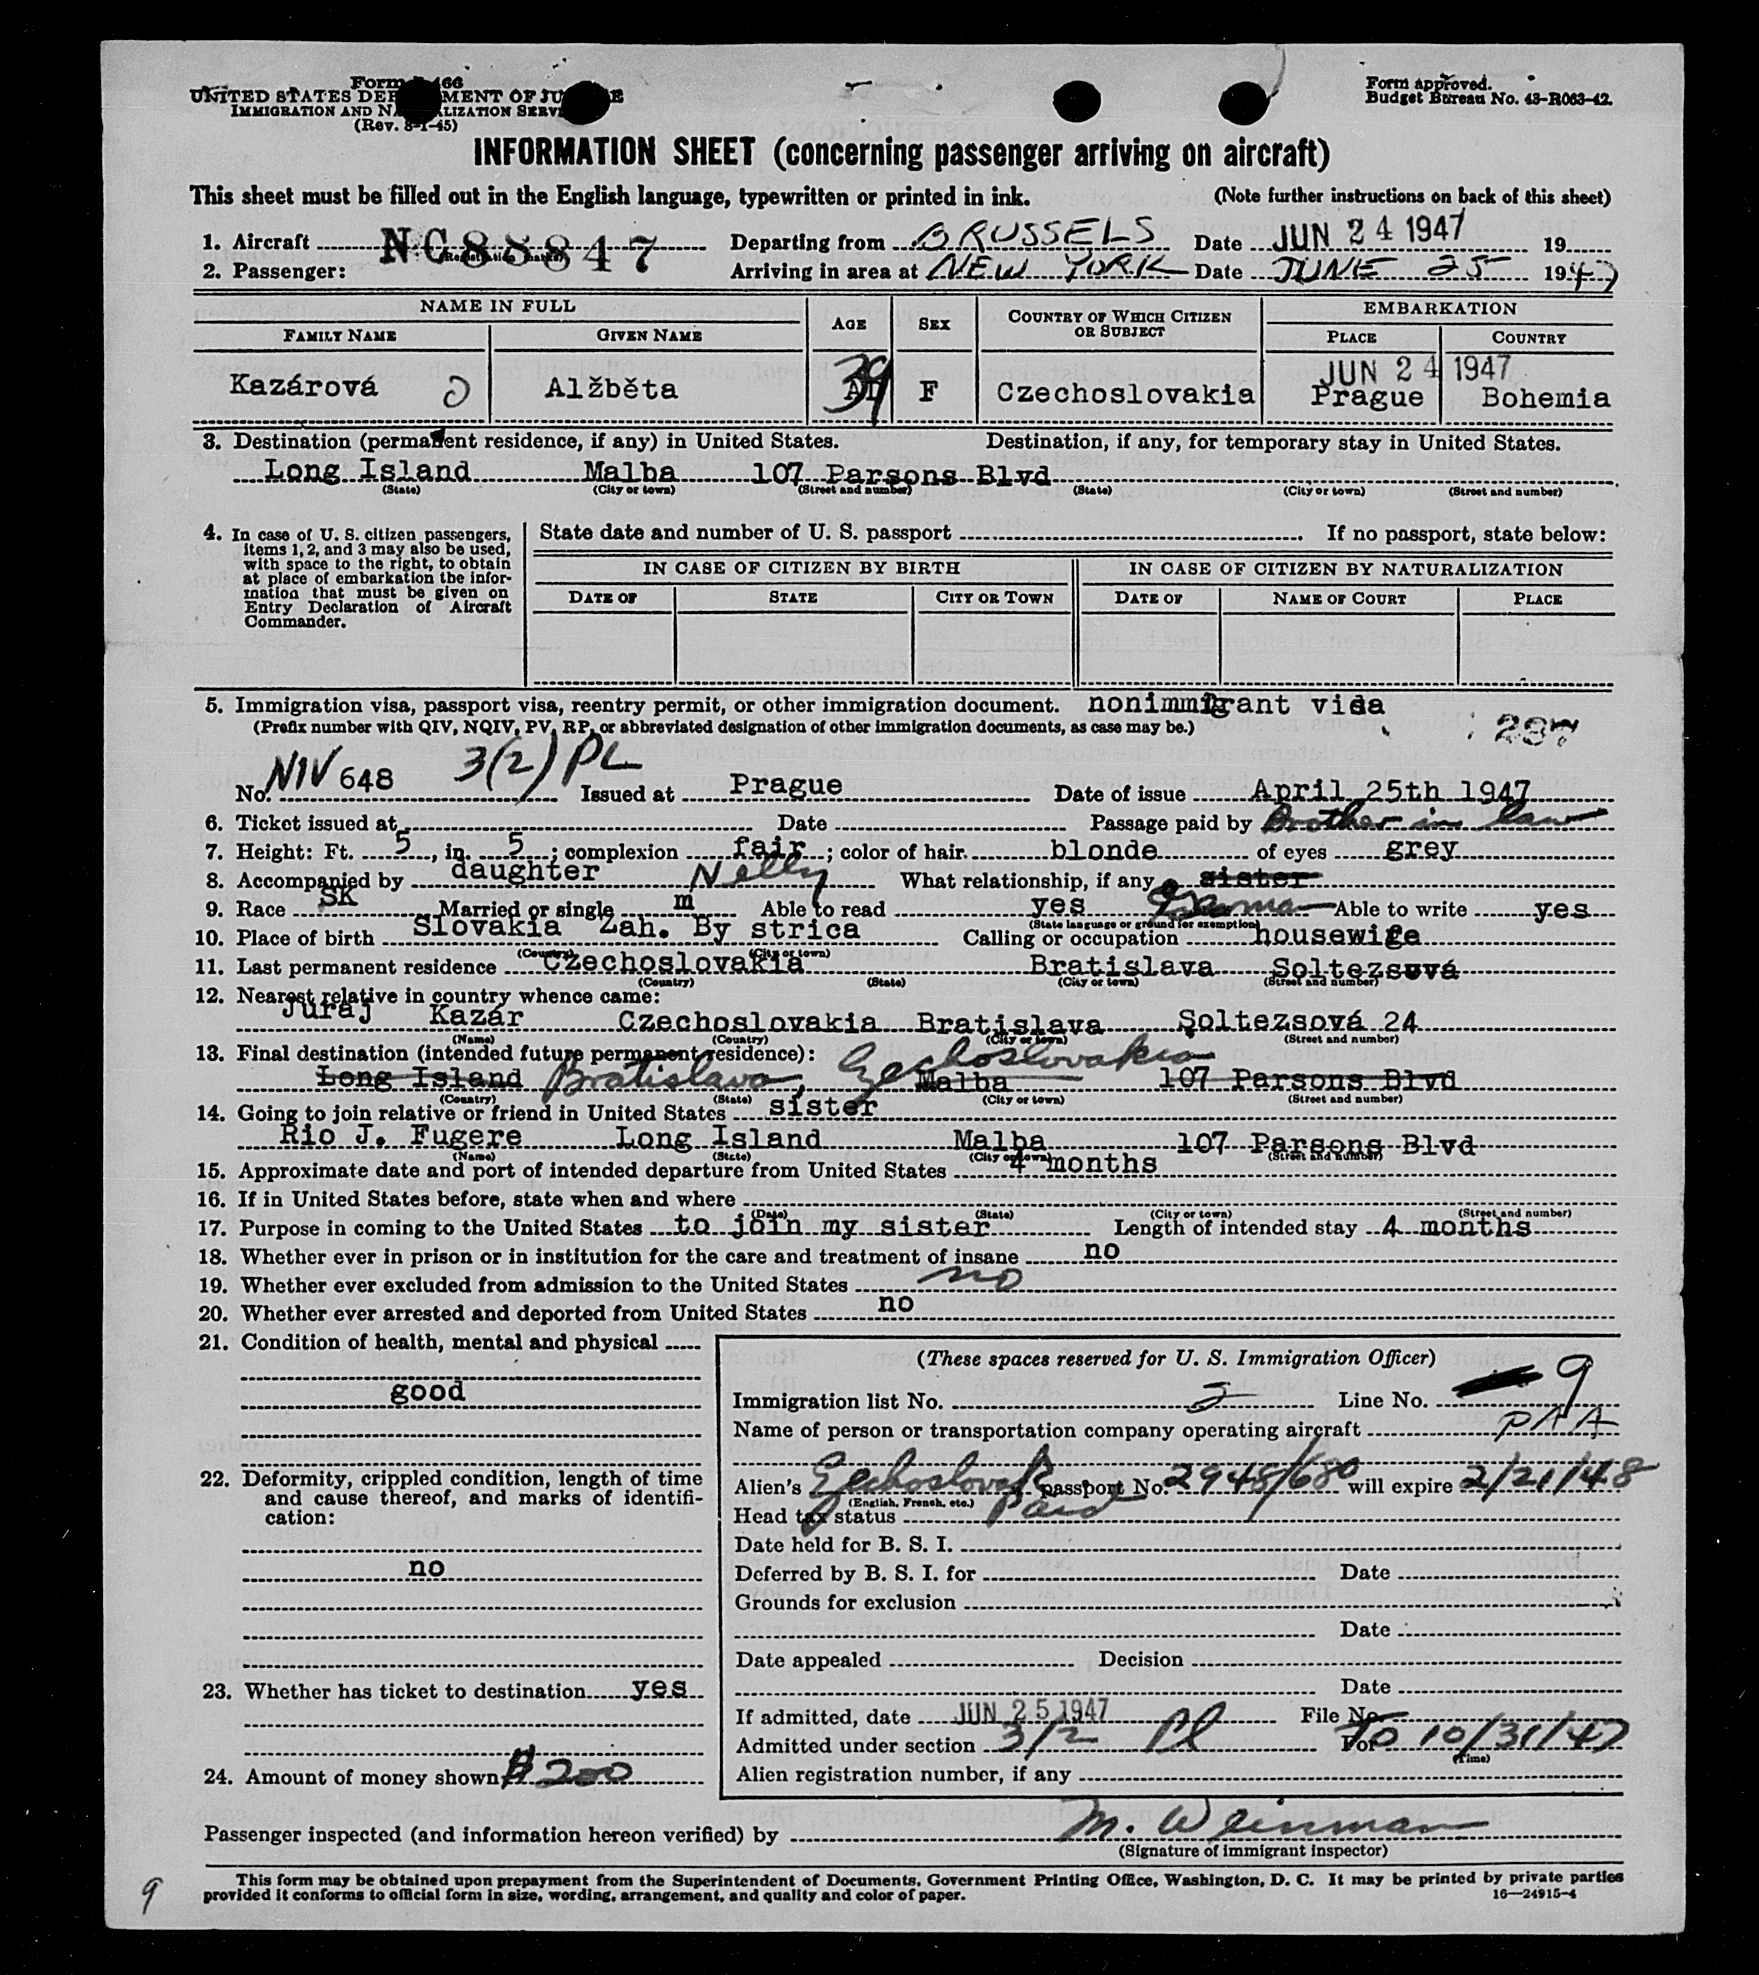 Form I-466
UNITED STATES DEPARTMENT OF JUSTICE
IMMIGRATION AND NATURALIZATION SERVICE
(Rev. 8-1-45)
Form approved.
Budget Bureau No. 43-R063-42.
INFORMATION SHEET (concerning passenger arriving on aircraft)
This sheet must be filled out in the English language, typewritten or printed in ink. (Note further instructions on back of this sheet)
1. Aircraft NC88847 (Registration marks) Departing from BRUSSELS Date JUN 24 1947 19
2. Passenger: Arriving in area at NEW YORK Date JUNE 25 1947
NAME IN FULL AGE SEX COUNTRY OF WHICH CITIZEN OR SUBJECT EMBARKATION
FAMILY NAME GIVEN NAME PLACE COUNTRY
JUN 24 1947
Kazárová Alžběta 39 F Czechoslovakia Prague Bohemia
3. Destination (permanent residence, if any) in United States. Destination, if any, for temporary stay in United States.
Long Island Malba 107 Parsons Blvd
(State) (City or town) (Street and number) (State) (City or town) (Street and number)
4. In case of U. S. citizen passengers, items 1, 2, and 3 may also be used, with space to the right, to obtain at place of embarkation the information that must be given on Entry Declaration of Aircraft Commander.
State date and number of U. S. passport If no passport, state below:
IN CASE OF CITIZEN BY BIRTH IN CASE OF CITIZEN BY NATURALIZATION
DATE OF STATE CITY OR TOWN DATE OF NAME OF COURT PLACE
5. Immigration visa, passport visa, reentry permit, or other immigration document. nonimmigrant visa
(Prefix number with QIV, NQIV, PV, RP, or abbreviated designation of other immigration documents, as case may be.) 287
No. NIV 648 3(2) PL Issued at Prague Date of issue April 25th 1947
6. Ticket issued at Date Passage paid by Brother in law
7. Height: Ft. 5, in. 5; complexion fair; color of hair blonde of eyes grey
8. Accompanied by daughter Nelly What relationship, if any sister
9. Race SK Married or single m Able to read yes German Able to write yes
(State language or ground for exemption)
10. Place of birth Slovakia Zah. By strica Calling or occupation housewife
(Country) (City or town)
11. Last permanent residence Czechoslovakia Bratislava Soltezsová
(Country) (State) (City or town) (Street and number)
12. Nearest relative in country whence came:
Juraj Kazár Czechoslovakia Bratislava Šoltezsová 24
(Name) (Country) (City or town) (Street and number)
13. Final destination (intended future permanent residence):
Long Island Bratislava, Czechoslovakia Malba 107 Parsons Blvd
(Country) (State) (City or town) (Street and number)
14. Going to join relative or friend in United States sister
Rio J. Fugere Long Island Malba 107 Parsons Blvd
(Name) (State) (City or town) (Street and number)
15. Approximate date and port of intended departure from United States 4 months
16. If in United States before, state when and where
(Date) (State) (City or town) (Street and number)
17. Purpose in coming to the United States to join my sister Length of intended stay 4 months
18. Whether ever in prison or in institution for the care and treatment of insane no
19. Whether ever excluded from admission to the United States no
20. Whether ever arrested and deported from United States no
21. Condition of health, mental and physical
good
22. Deformity, crippled condition, length of time and cause thereof, and marks of identification:
no
23. Whether has ticket to destination yes
24. Amount of money shown $200
(These spaces reserved for U. S. Immigration Officer)
Immigration list No. 2 Line No. 9
Name of person or transportation company operating aircraft PAA
Alien's Czechoslovak passport No. 2948/680 will expire 2/21/48
(English, French, etc.)
Head tax status Paid
Date held for B. S. I.
Deferred by B. S. I. for Date
Grounds for exclusion
Date
Date appealed Decision
Date
If admitted, date JUN 25 1947 File No.
Admitted under section 3/2 Pl For TO 10/31/47
(Time)
Alien registration number, if any
Passenger inspected (and information hereon verified) by M. Weinman
(Signature of immigrant inspector)
This form may be obtained upon prepayment from the Superintendent of Documents, Government Printing Office, Washington, D. C. It may be printed by private parties
provided it conforms to official form in size, wording, arrangement, and quality and color of paper. 16—24915-4
9